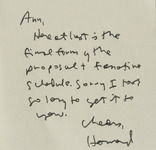 Ann,
Here at last is the
final form of the
proposal & tentative
schedule. Sorry I took
so long to get it to
you.
Cheers,
Howard